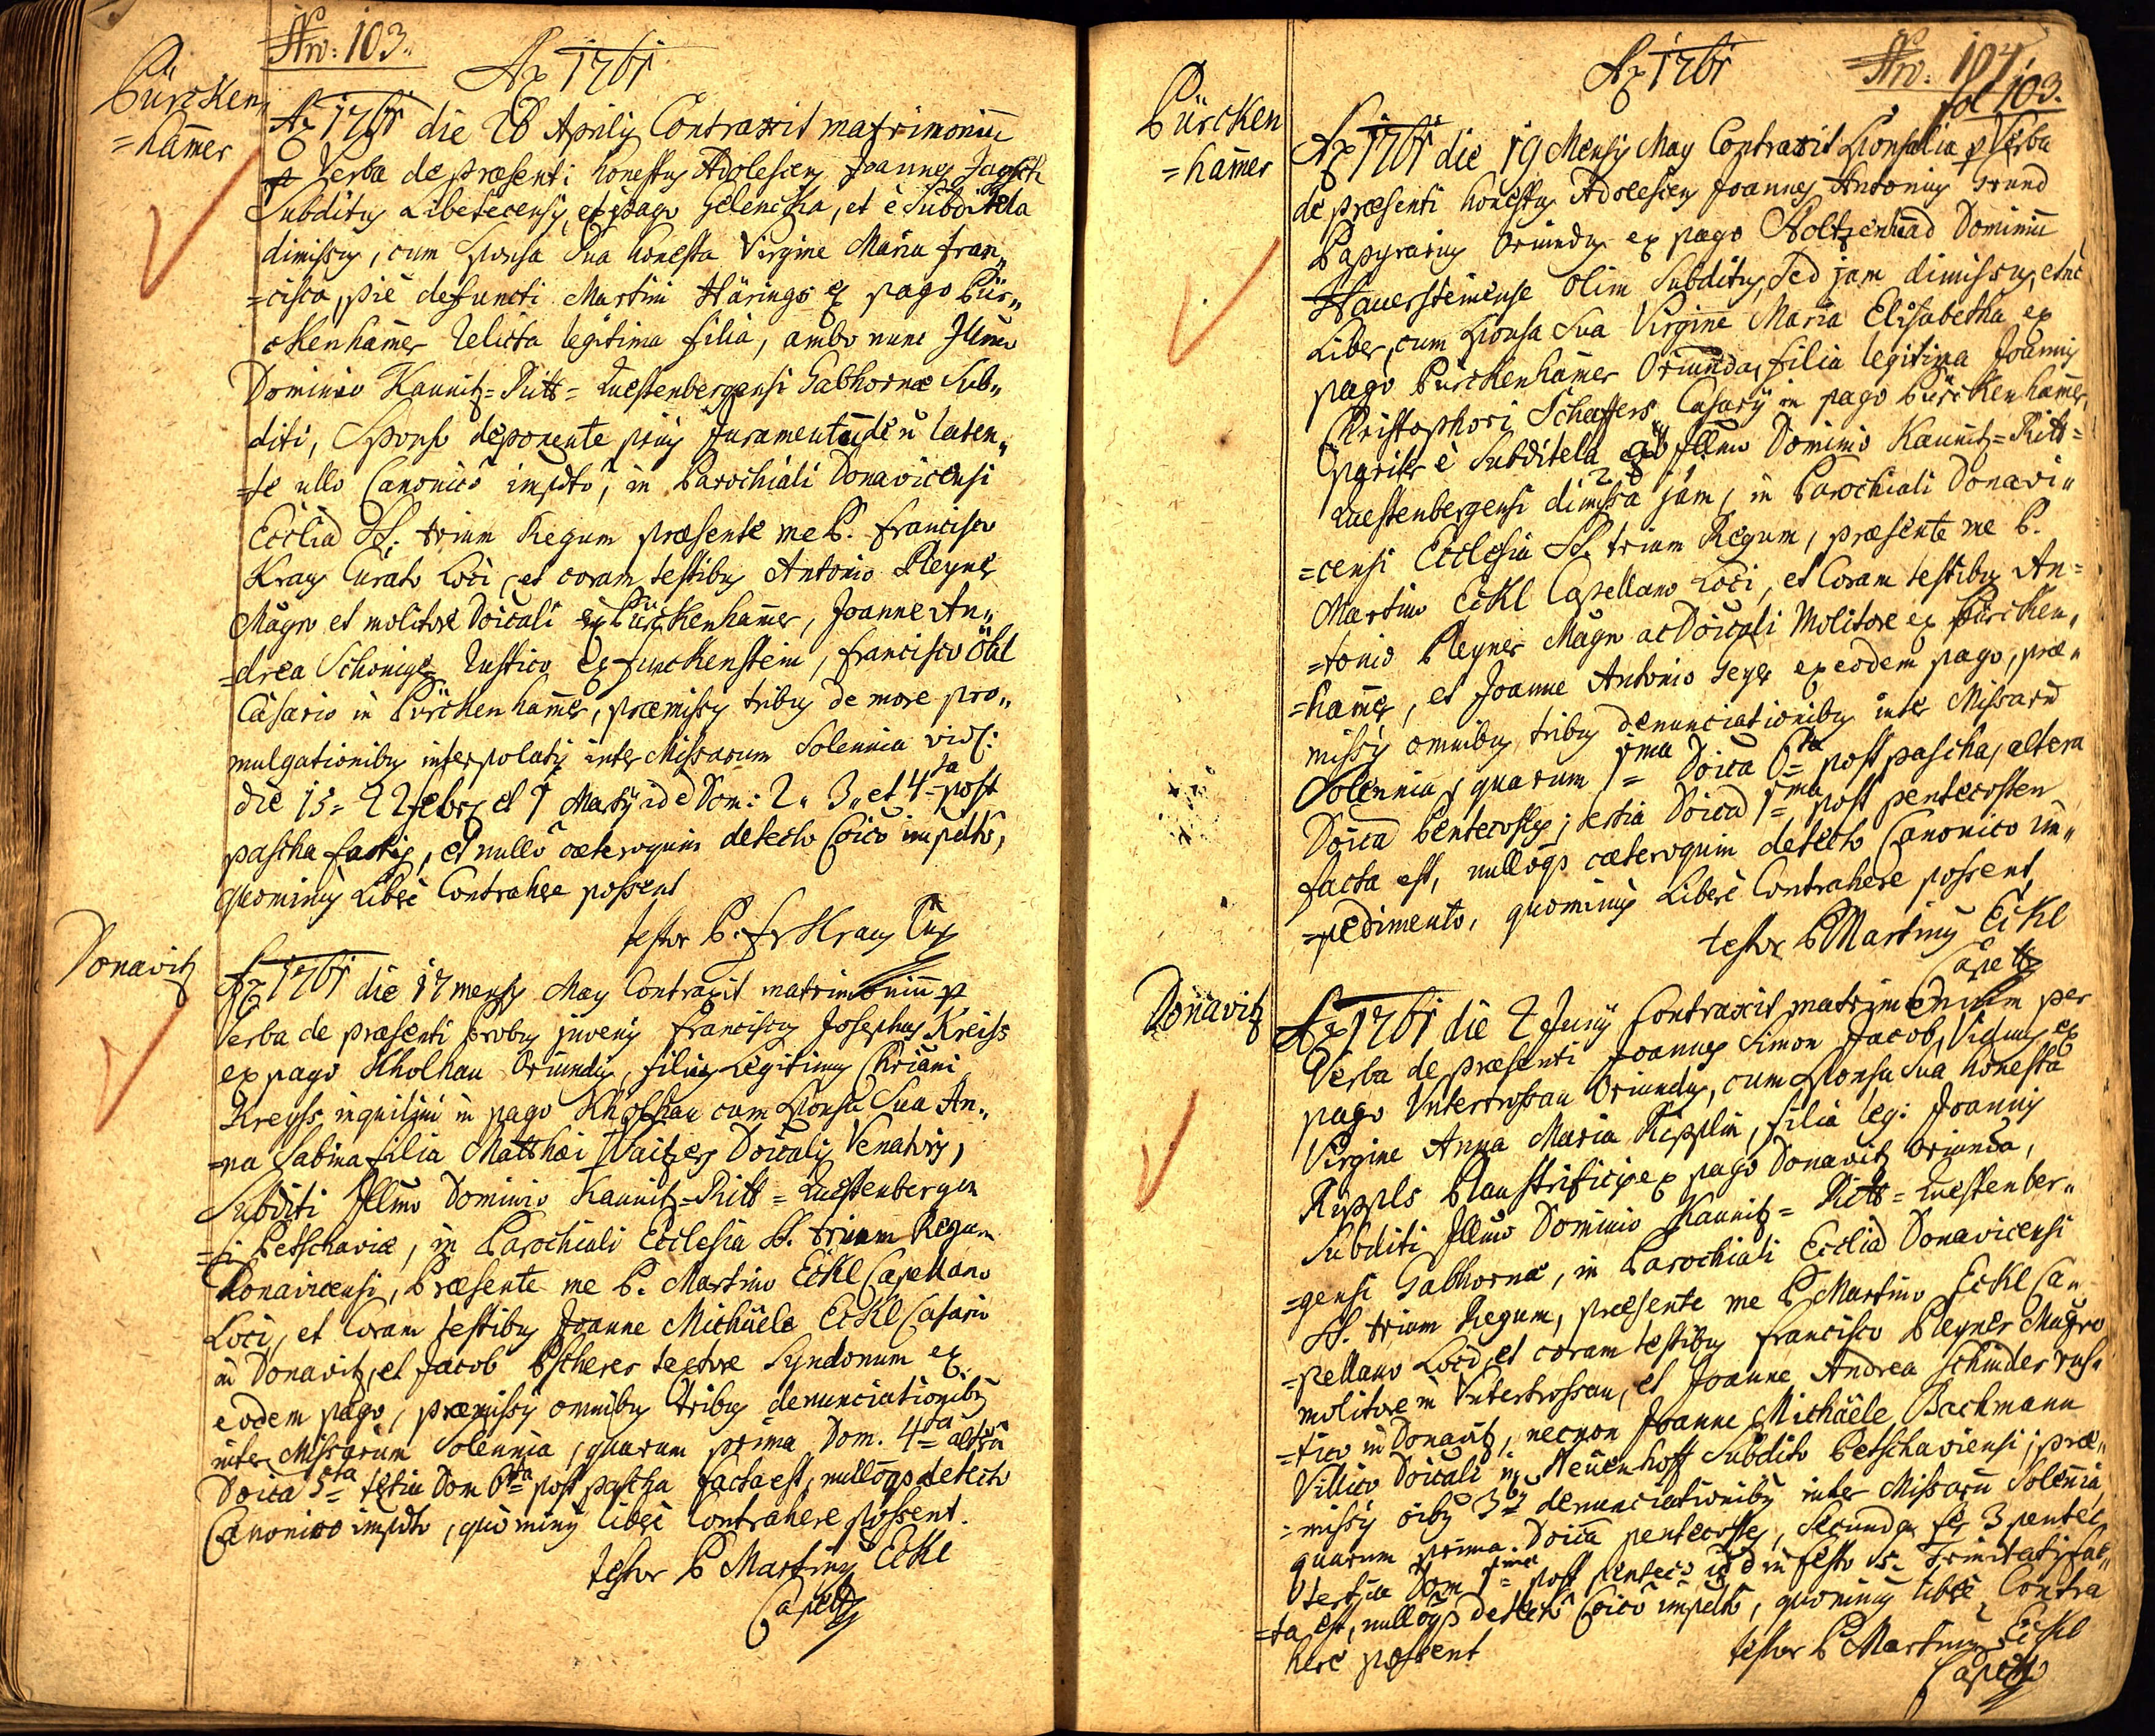 No: 103.
Ao 1761
Bürcken,,
=ham̄er
Ao 1761 die 28 Aprilis Contraxit matrimoniū
p Verba de præsenti honestus Adolescens Joannes
Subditus Libetecensis, ex pago Gelencka, et è Subditela
dimissus, cum Sponsa Sua honesta Virgine Maria Fran,,
=cisca, piè defuncti Martini Härings ex pago Bür,,
ckenham̄er relicta legitima filia, ambo nunc Illmo
Dominio Kaunitz=Ritt=Questenbergensi Gabhornæ Sub,,
diti, Sponso deponente prius Juramentū de n̄ laten,,
=te ullo Canonico impdto, in Parochiali Donavicensi
Ecclia SS. trium Regum præsente me P. Francisco
Kraus Curato Loci, et coram testibus Antonio Pleyner
Magro et molitore Doicali ex Bürckenham̄er, Joanne An,,
=drea Schöniger Rustico ex Funckenstein, Francisco Öhl
Casario in Bürckenham̄er, præmissis tribus de more pro,,
mulgationibus interpolatis inter Missarum Solennia vidl:
die 15= 22 Febr et 1 Martij id e Dom: 2,, 3,, et 4ta post
pascha factis, et nullō cæteroquin detecto Coico impdto,
quominus Liberè Contrahere possent
testor P. Fr Kraus Cur
Donavitz
Ao 1761 die 17 mensis May Contraxit matrimoniū p
Verba de præsenti probus juvenis Franciscus Josephus Kreiss
ex pago Kholhau Oriundus, filius Legitimus Chriani
Kreyss inquilini in pago Kholhau cum Sponsa Sua An,,
=na Sabina filia Matthæi Waitzers Doicalis Venatoris,
Subditi Illmo Dominio Kaunitz=Ritt=Questenbergen
=si Petschaviæ, in Parochiali Ecclesia SS. trium Regum
Donavicensi, Præsente me P. Martino Eckl Capellano
Loci, et Coram testibus Joanne Michäele Eckl Casario
in Donavitz, et Jacob Pscherer textore Syndonum ex
eodem pago, præmissis omnibus tribus denunciationibus
inter Missarum Solennia, quarum prima Dom. 4ta altera
Doica 5ta tertia Dom 6ta post pascha facta est, nullōqs detecto
Canonico impdto, quo minus liberè Contrahere possent.
testor P Martinus Eckl
Capells
No: 104
fol 103.
Ao 1761
Bürcken
=ham̄er
Ao 1761 die 19 Mensis May Contraxit Sponsalia p Verba
de præsenti honestus Adolescens Joannes Antonius Grund
Papyrarius Oriundus ex pago Dominiū
Hauersteinense olim Subditus, sed jam dimissus, et nc
Liber, cum Sponsa Sua Virgine Maria Elisabetha ex
pago Bürckenham̄er Oriunda, filia legitima Joannis
Christophori Schaffers Casarij in pago Bürckenham̄er,
pariter è Subditela ab Illmo Dominio Kaunitz=Ritt=
Questenbergensi dimissa jam, in Parochiali Donavi,,
=censi Ecclesia SS. trium Regum, præsente me P.
Martino Eckl Capellano Loci, et Coram testibus An=
=tonio Pleyner Magro ac Doicali Molitore ex Bürcken,,
=ham̄er, et Joanne Antonio Geyer ex eodem pago, præ,,
missis omnibus tribus denunciationibus inter Missarū
Solennia, quarum 1ma Doica 6ta post pascha, altera
Doica Pentecostes; tertia Doica 1ma post pentecosten
facta est, nullōqs cæteroquin detecto Canonico im,,
=pedimento, quominus Liberè Contrahere possent
testor P Martinus Eckl
Capells
Donavitz
Ao 1761 die 2 Junij Contraxit matrimonium per
Verba de præsenti Joannes Simon Jacob, Viduus ex
pago Untertrossau Oriundus, cum Sponsa Sua honesta
Virgine Anna Maria Ripplin, filia leg: Joannis
Ripples Plaustrificis ex pago Donavitz oriunda,
Subditi Illmo Dominio Kaunitz=Ritt=Questenber,,
=gensi Gabhornæ, in Parochiali Ecclia Donavicensi
SS. trium Regum, præsente me P Martino Eckl Ca,,
=pellano Loci, et coram testibus Francisco Pleyner Magro
molitore in Untertrossau, et Joanne Andrea Schinder rus,,
=tico in Donavitz, necnon Joanne Michäele Bachmann
Villico Doicali in Neuenhoff Subdito Petschaviensi; præ,,
=missis oībus 3bus denunciationibus inter Missarū Solenia,
quarum prima Doica pentecostes, Secunda fer 3 pentec
tertia Dom 1ma post pentec: id e in festo SS. Trinitatis fac,,
=ta est, nullōqs detecto Coico impdto, quominus liberè Contra
here possent
testor P Martinus Eckl
Capells